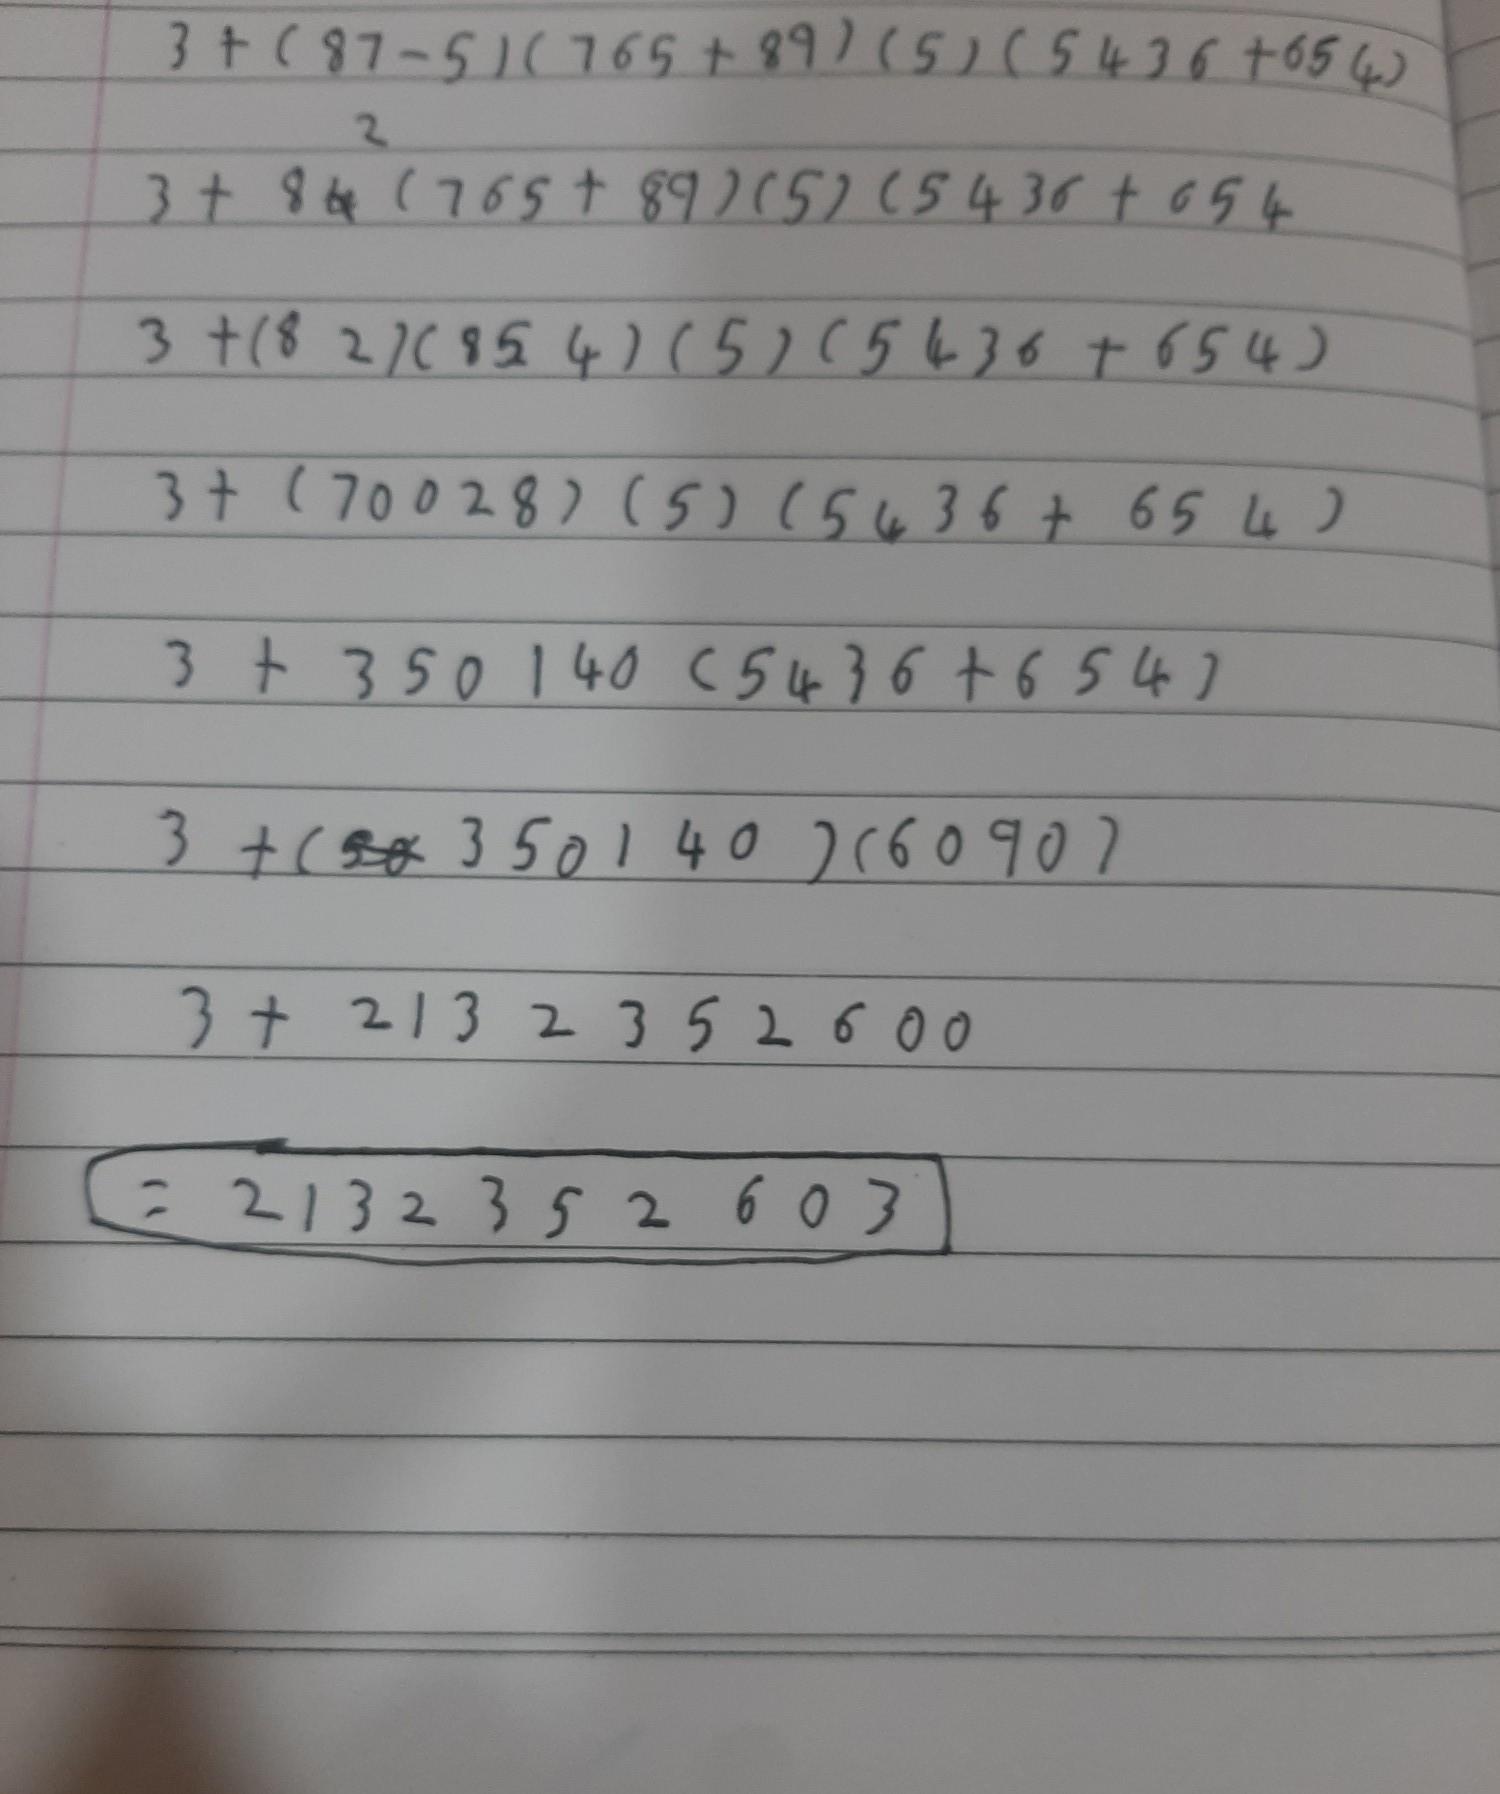 3 + (87 - 5)(765 + 89)(5)(5436 + 654)
2
3 + 84 (765 + 89)(5)(5436 + 654
3 + (82)(854)(5)(5436 + 654)
3 + (70028)(5)(5436 + 654)
3 + 350140 (5436 + 654)
3 + (350140)(6090)
3 + 2132352600
= 2132352603